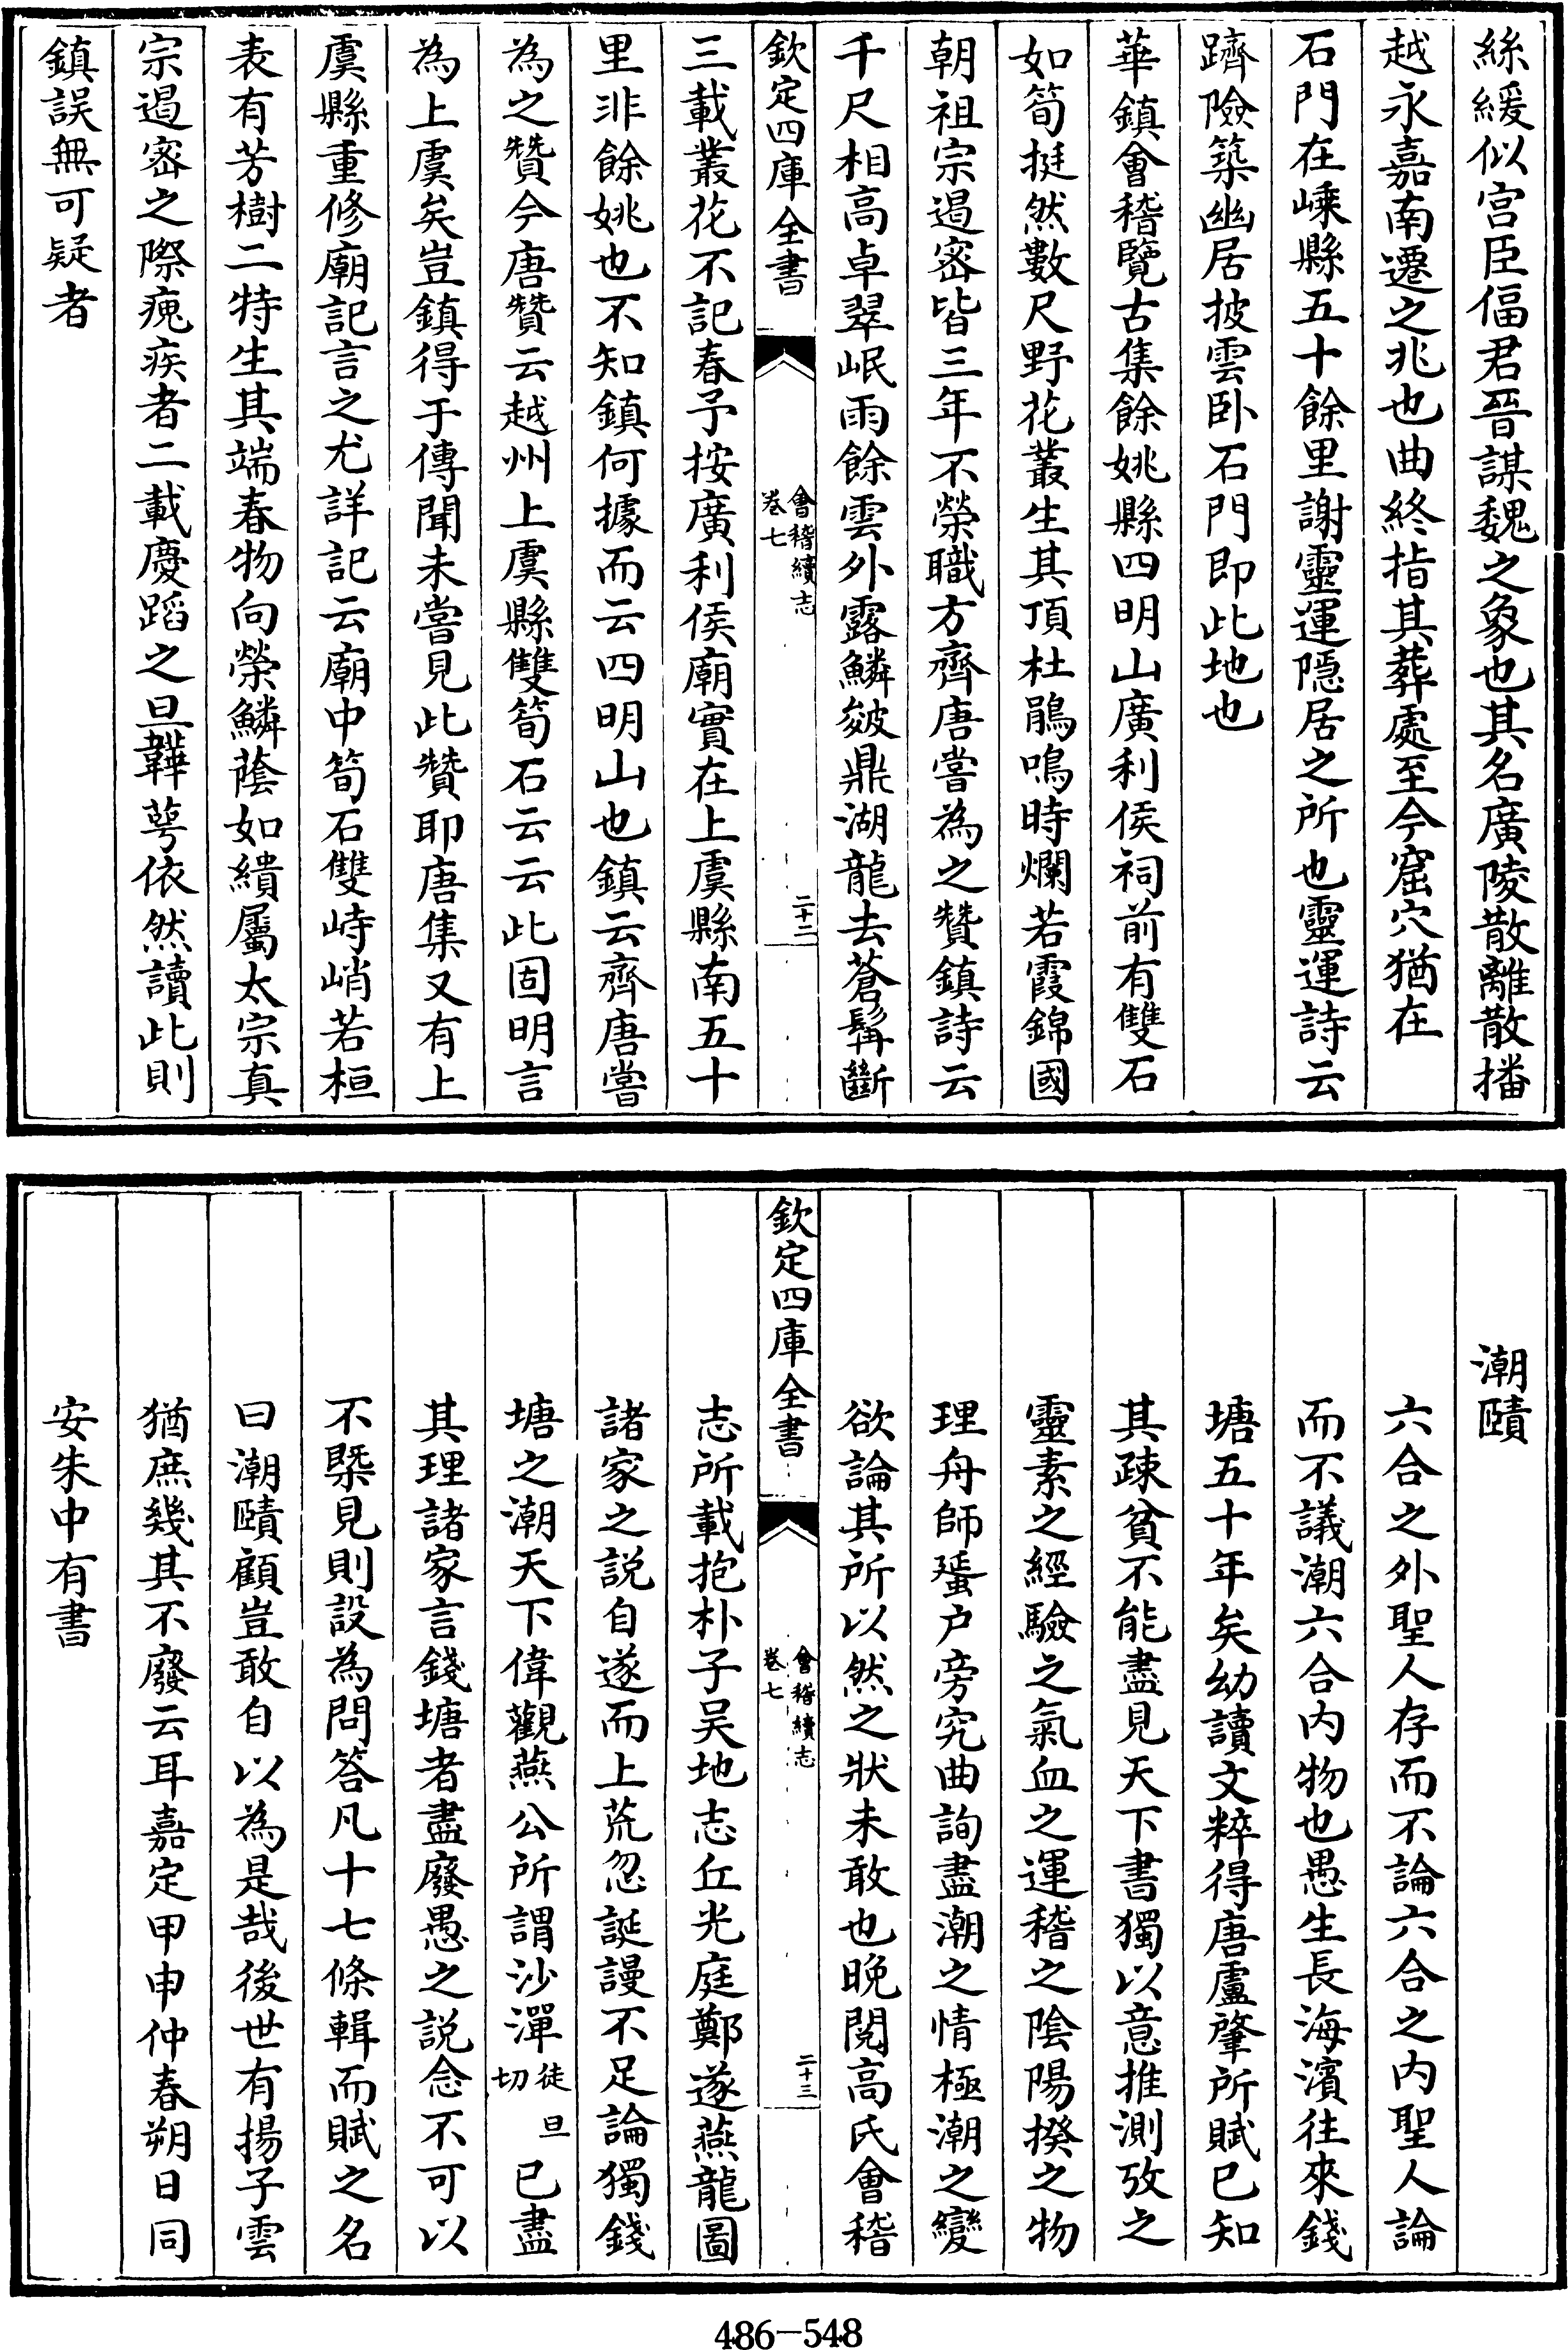 絲緩似宮臣偪君晉謀魏之象也其名廣陵散離散播
越永嘉南遷之兆也曲終指其葬處至今窟穴猶在
石門在嵊縣五十餘里謝靈運隱居之所也靈運詩云
躋險築幽居披雲卧石門即此地也
華鎮會稽覽古集餘姚縣四明山廣利侯祠前有雙石
如筍挺然數尺野花叢生其頂杜鵑鳴時爛若霞錦國
朝祖宗遏密皆三年不榮職方齊唐嘗為之贊鎮詩云
千尺相高卓翠岷雨餘雲外露鱗皴鼎湖龍去蒼髯斷
欽定四庫全書
會稽續志
卷七
二十二
三載叢花不記春予按廣利侯廟實在上虞縣南五十
里非餘姚也不知鎮何據而云四明山也鎮云齊唐嘗
為之贊今唐贊云越州上虞縣雙筍石云云此固明言
為上虞矣豈鎮得于傳聞未嘗見此贊耶唐集又有上
虞縣重修廟記言之尤詳記云廟中筍石雙峙峭若桓
表有芳樹二特生其端春物向榮鱗蔭如繢屬太宗真
宗遏密之際瘣疾者二載慶蹈之旦韡萼依然讀此則
鎮誤無可疑者
潮賾
六合之外聖人存而不論六合之內聖人論
而不議潮六合内物也愚生長海濱往來錢
塘五十年矣幼讀文粹得唐盧肇所賦已知
其疎貧不能盡見天下書獨以意推測攷之
靈素之經驗之氣血之運稽之陰陽揆之物
理舟師蜑户旁究曲詢盡潮之情極潮之變
欲論其所以然之狀未敢也晚閱高氏會稽
欽定四庫全書
會稽續志
卷七
二十三
志所載抱朴子吴地志丘光庭鄭遂燕龍圖
諸家之説自遂而上荒忽誕謾不足論獨錢
塘之潮天下偉觀燕公所謂沙潬徒旦切已盡
其理諸家言錢塘者盡廢愚之説念不可以
不槩見則設為問答凡十七條輯而賦之名
曰潮賾顧豈敢自以為是哉後世有揚子雲
猶庶幾其不廢云耳嘉定甲申仲春朔日同
安朱中有書
486-548